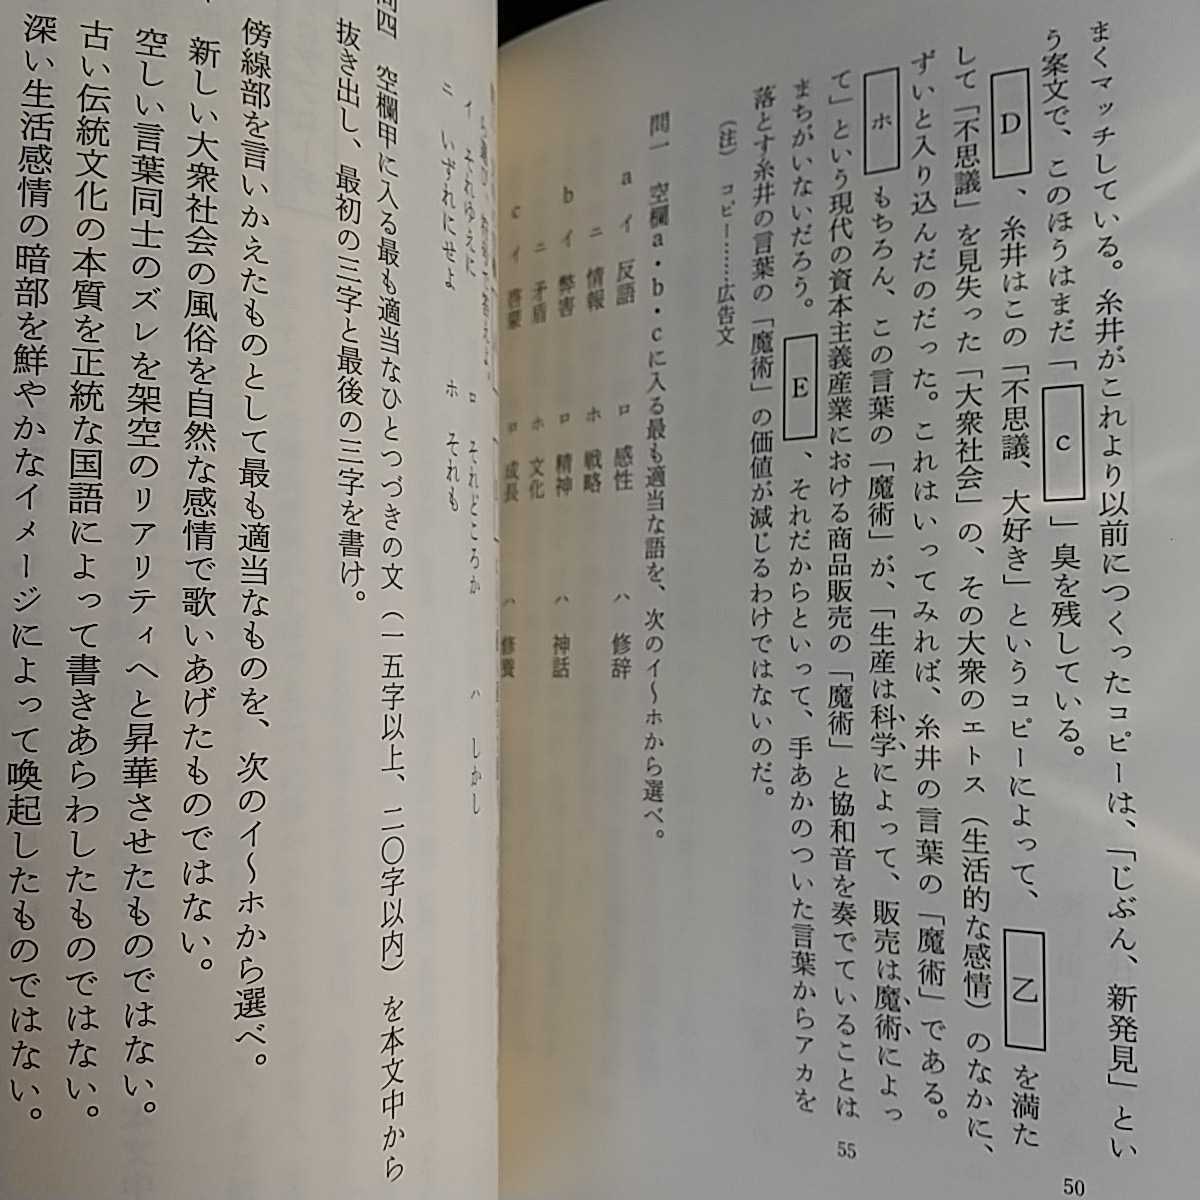 まくマッチしている。糸井がこれより以前につくったコピーは、「じぶん、新発見」とい
う案文で、このほうはまだ「 c 」臭を残している。
D 、糸井はこの「不思議、大好き」というコピーによって、 乙 を満た
して「不思議」を見失った「大衆社会」の、その大衆のエトス（生活的な感情）のなかに、
ずいと入り込んだのだった。これはいってみれば、糸井の言葉の「魔術」である。
ホ もちろん、この言葉の「魔術」が、「生産は科学によって、販売は魔術によっ
て」という現代の資本主義産業における商品販売の「魔術」と協和音を奏でていることは
まちがいないだろう。 E 、それだからといって、手あかのついた言葉からアカを
落とす糸井の言葉の「魔術」の価値が減じるわけではないのだ。
（注）コピー……広告文
50
55
問一 空欄a・b・cに入る最も適当な語を、次のイ〜ホから選べ。
a イ 反語 ロ 感性 ハ 修辞
ニ 情報 ホ 戦略
b イ 弊害 ロ 精神 ハ 神話
ニ 矛盾 ホ 文化
c イ 啓蒙 ロ 成長 ハ 修養
イ それゆえに ロ それどころか ハ しかし
ニ いずれにせよ ホ それも
問四 空欄甲に入る最も適当なひとつづきの文（一五字以上、二〇字以内）を本文中から
抜き出し、最初の三字と最後の三字を書け。
傍線部を言いかえたものとして最も適当なものを、次のイ〜ホから選べ。
新しい大衆社会の風俗を自然な感情で歌いあげたものではない。
空しい言葉同士のズレを架空のリアリティへと昇華させたものではない。
古い伝統文化の本質を正統な国語によって書きあらわしたものではない。
深い生活感情の暗部を鮮やかなイメージによって喚起したものではない。